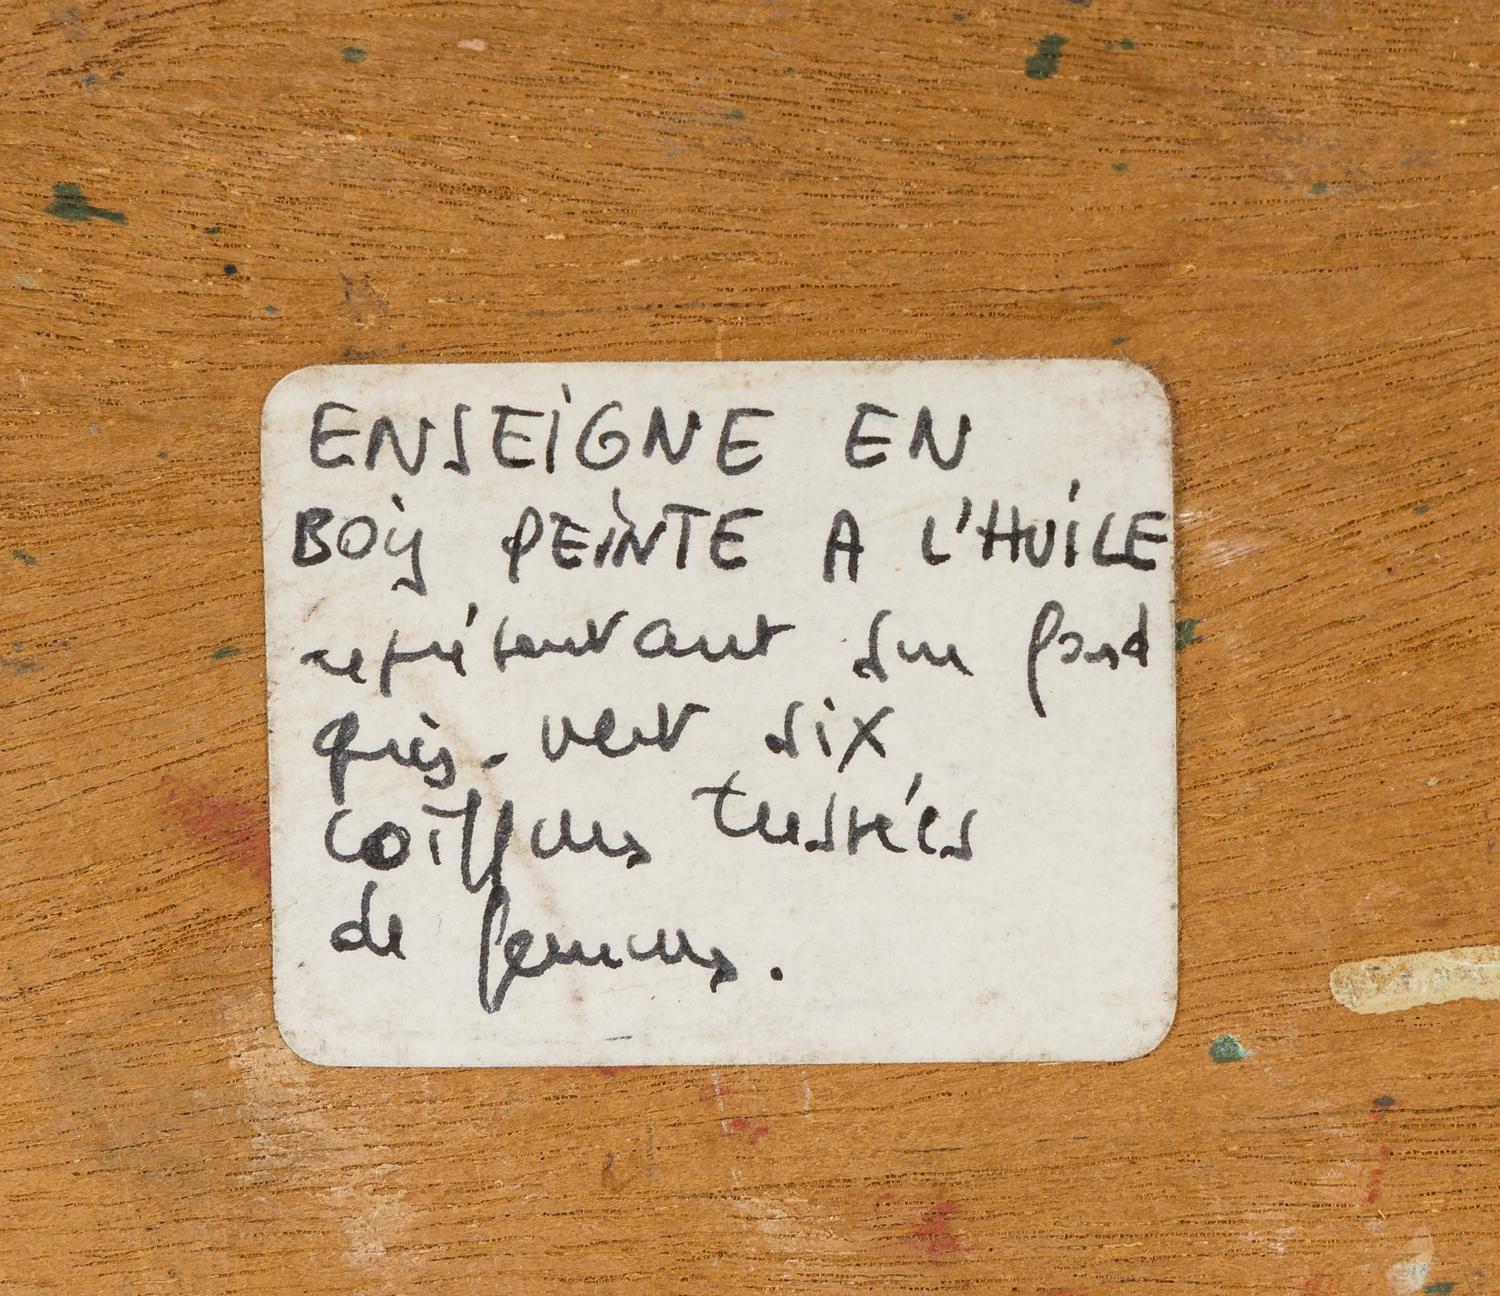 ENSEIGNE EN
BOIS PEINTE A L'HUILE
représentant sur fond
gris-vert six
coiffures tressées
de femmes.